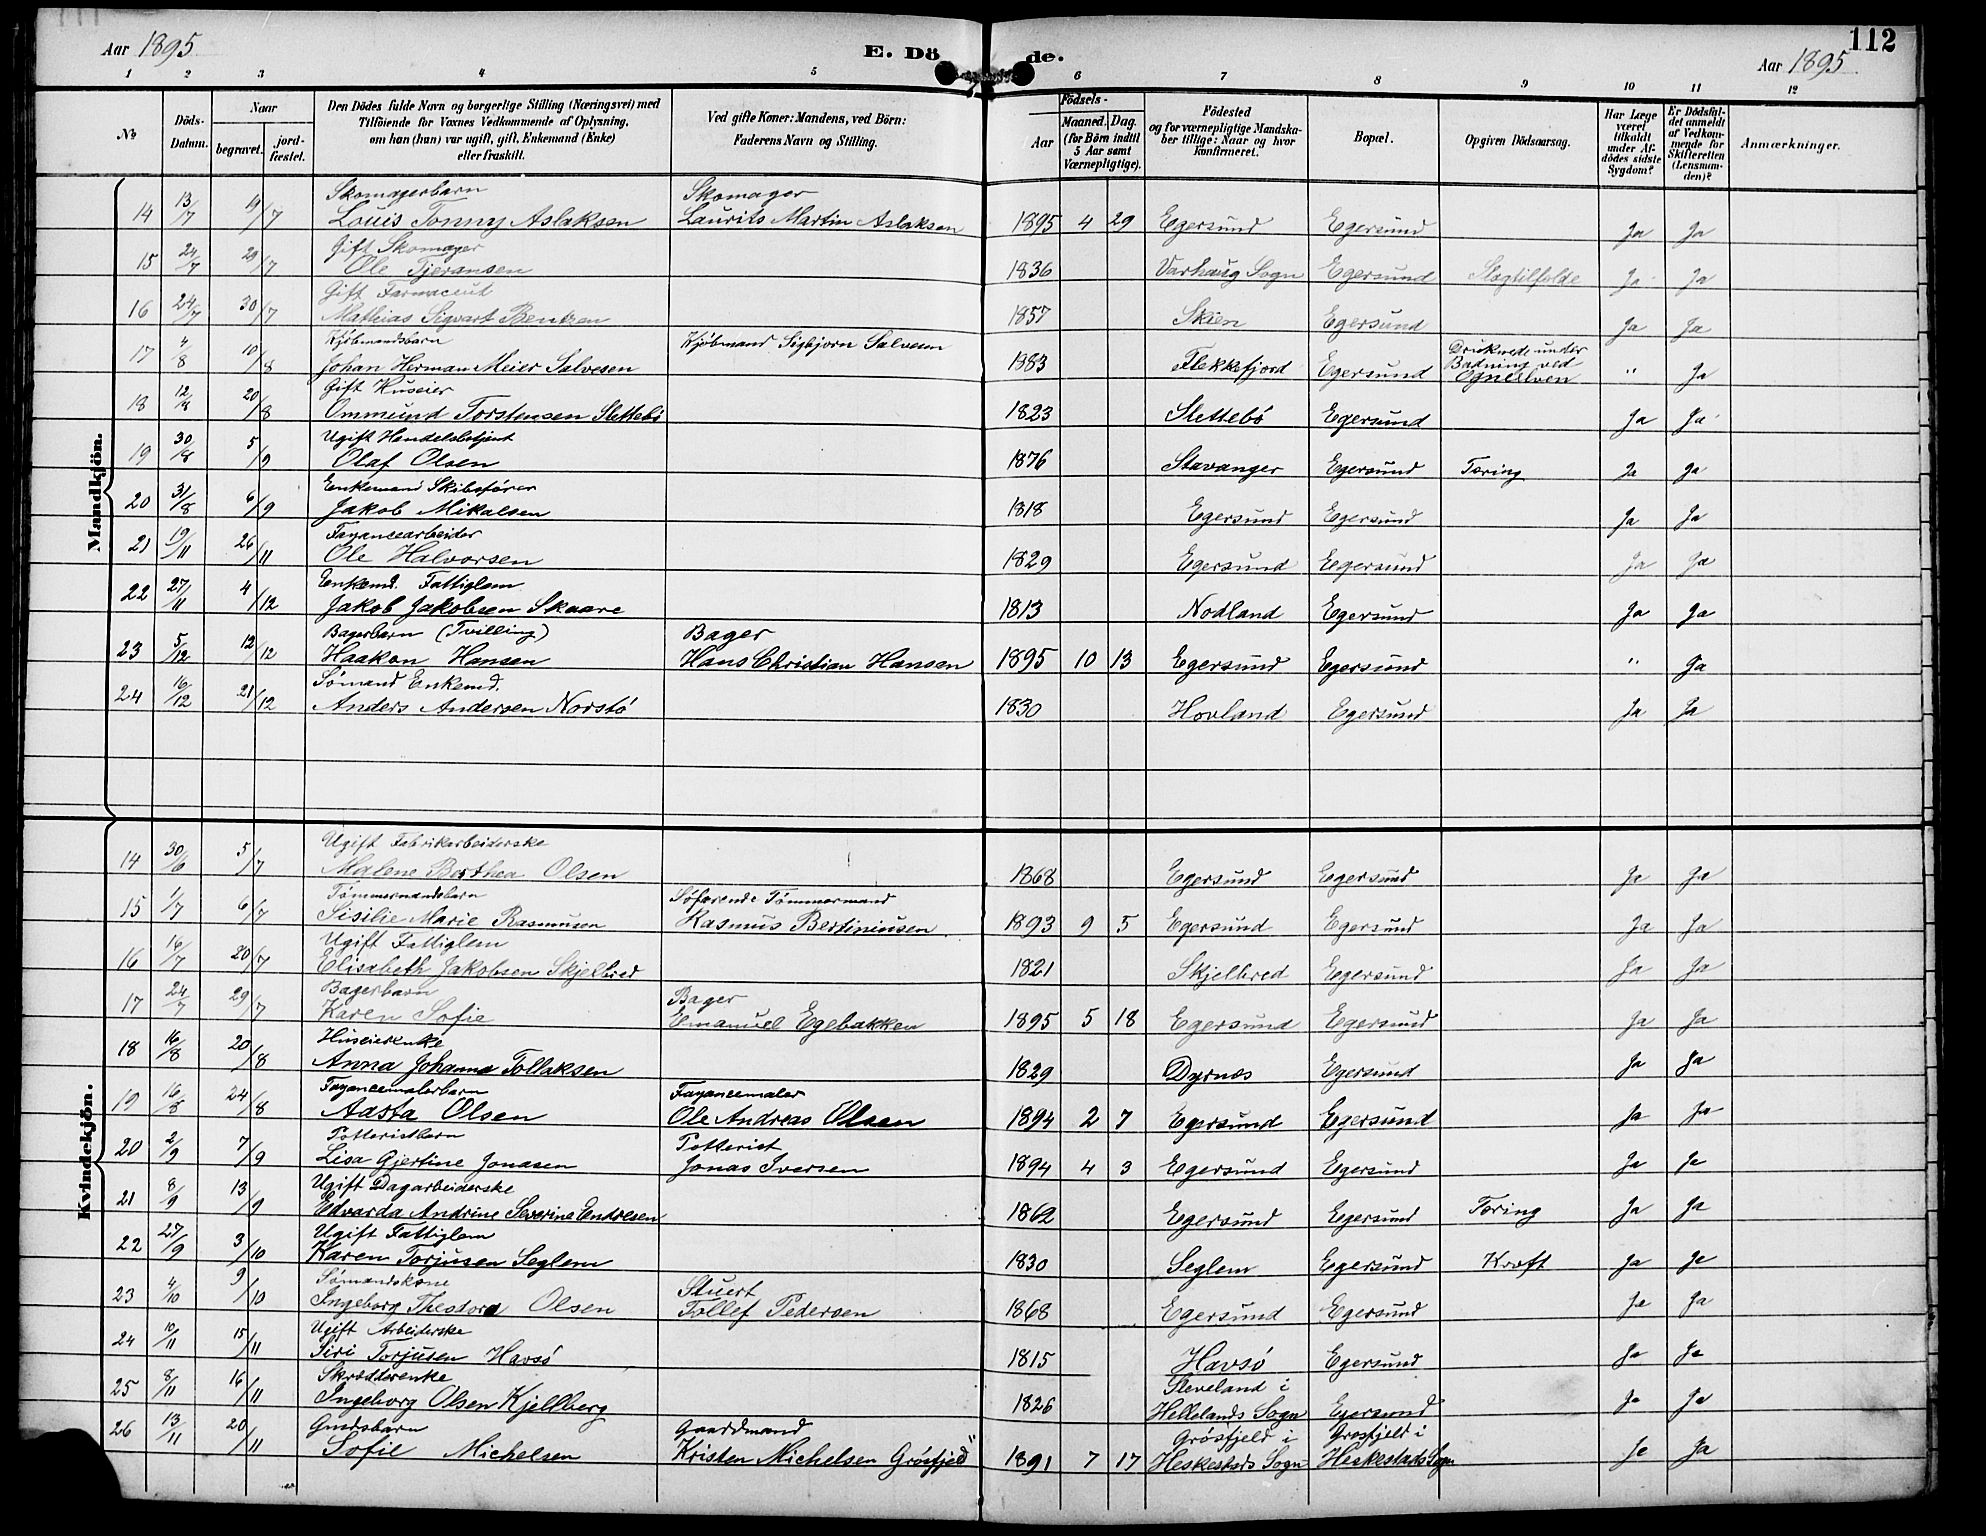 Aar 1895
E. Döde.
112
Aar 1895
1 2 3 4 5 6 7 8 9 10 11 12
No
Döds-Datum.
Naar
begravet.
jord-fæstet.
Den Dödes fulde Navn og borgerlige Stilling (Næringsvei) med
Tilföiende for Voxnes Vedkommende af Oplysning,
om han (hun) var ugift, gift, Enkemand (Enke)
eller fraskilt.
Ved gifte Koner: Mandens, ved Börn:
Faderens Navn og Stilling.
Födsels-
Aar
Maaned. Dag.
(for Börn indtil
5 Aar samt
Værnepligtige).
Födested
og for værnepligtige Mandska-
ber tillige: Naar og hvor
konfirmeret.
Bopæl.
Opgiven Dödsaarsag.
Har Læge
været
tilkaldt
under Af-
dödes sidste
Sygdom?
Er Dödsfal-
det anmeldt
af Vedkom-
mende for
Skifteretten
(Lensman-
den)?
Anmærkninger.
Mandkjön.
Skomagerbarn Skomager
14 13/7 19/7 Louis Tonny Aslaksen Laurits Martin Aslaksen 1895 4 29 Egersund Egersund Ja Ja
Gift Skomager
15 24/7 29/7 Ole Tjeransen 1836 Varhaug Sogn Egersund Slagtilfælde Ja Ja
Gift Farmaceut
16 24/7 30/7 Mathias Sigvart Bentzen 1857 Skien Egersund Ja Ja
Kjøbmandsbarn Kjøbmand Sigbjørn Salvesen
17 4/8 10/8 Johan Herman Meier Salvesen 1883 Flekkefjord Egersund Druknede under
Badning ved
Ogneelven " Ja
Gift Huseier
18 12/8 20/8 Ommund Torstensen Slettebö 1823 Slettebö Egersund Ja Ja
Ugift Handelsbetjent
19 30/8 5/9 Olaf Olsen 1876 Stavanger Egersund Tæring Ja Ja
Enkemand Skibsfører
20 31/8 6/9 Jakob Mikalsen 1818 Egersund Egersund Ja Ja
Fayancearbeider
21 19/11 26/11 Ole Halvorsen 1829 Egersund Egersund Ja Ja
Enkemd. Fattiglem
22 27/11 4/12 Jakob Jakobsen Skaare 1813 Nodland Egersund Ja Ja
Bagerbarn (Tvilling) Bager
23 5/12 12/12 Haakon Hansen Hans Christian Hansen 1895 10 13 Egersund Egersund " Ja
Sømand Enkemd.
24 16/12 21/12 Anders Andersen Norstö 1830 Hovland Egersund Ja Ja
Kvindekjön.
Ugift Fabrikarbeiderske
14 30/6 5/7 Malene Berthea Olsen 1868 Egersund Egersund Ja Ja
Tömmermandsbarn Søfarende Tömmermand
15 1/7 6/7 Sisilie Marie Rasmussen Rasmus Bertiniusen 1893 9 5 Egersund Egersund Ja Ja
Ugift Fattiglem
16 16/7 20/7 Elisabeth Jakobsen Skjelbred 1821 Skjelbred Egersund Ja Ja
Bagerbarn Bager
17 24/7 29/7 Karen Sofie Emanuel Egebakken 1895 5 18 Egersund Egersund Ja Ja
Huseierenke
18 16/8 20/8 Anna Johanna Tollaksen 1829 Dyrnes Egersund Ja Ja
Fayancemalerbarn Fayancemaler
19 16/8 24/8 Aasta Olsen Ole Andreas Olsen 1894 2 7 Egersund Egersund Ja Ja
Potteristbarn Potterist
20 2/9 7/9 Lisa Gjertine Jonasen Jonas Iversen 1894 4 3 Egersund Egersund Ja Ja
Ugift Dagarbeiderske
21 8/9 13/9 Edvarda Andrine Severine Endresen 1862 Egersund Egersund Tæring Ja Ja
Ugift Fattiglem
22 27/9 3/10 Karen Torjusen Seglem 1830 Seglem Egersund Kræft Ja Ja
Sømandskone Stuert
23 4/10 9/10 Ingeborg Theodora Olsen Tollef Pedersen 1868 Egersund Egersund Ja Ja
Ugift Arbeiderske
24 10/11 15/11 Siri Torjusen Havsö 1815 Havsö Egersund Ja Ja
Skrædderenke Sleveland i
25 8/11 16/11 Ingeborg Olsen Kjellberg 1826 Hellelands Sogn Egersund Ja Ja
Gmdsbarn Gaardmand Grösfjeld i Grösfjeld i
26 13/11 20/11 Sofie Michelsen Kristen Michelsen Grösfjeld 1891 7 17 Heskestads Sogn Heskestads Sogn Ja Ja